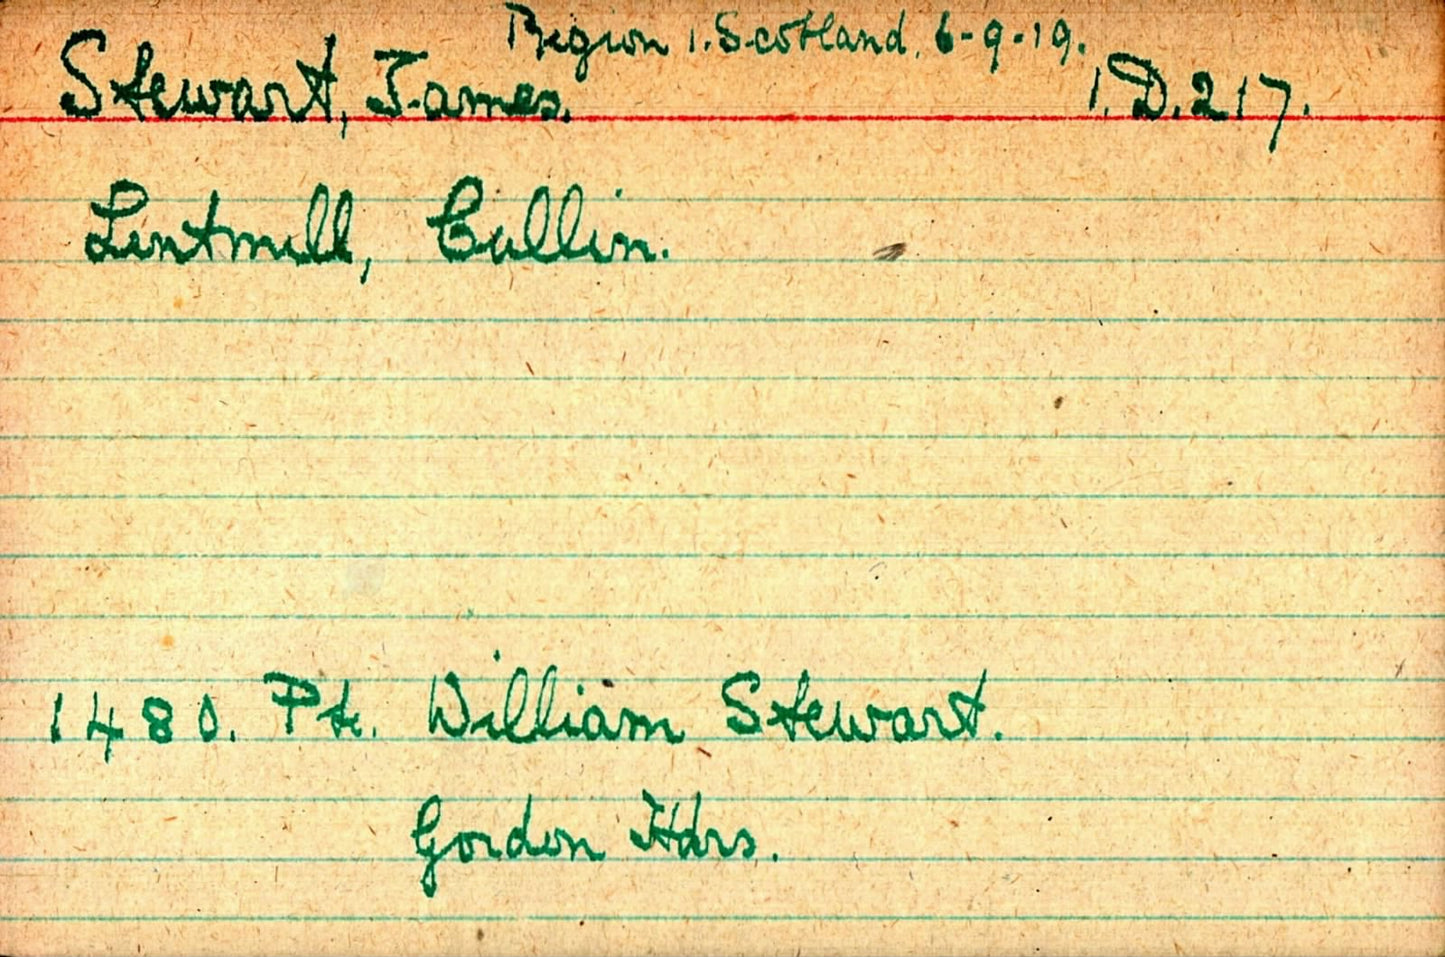 Region 1. Scotland. 6-9-19.
Stewart, James. 1.D.217.
Lintmill, Cullin.
1480. Pte. William Stewart.
Gordon Hdrs.